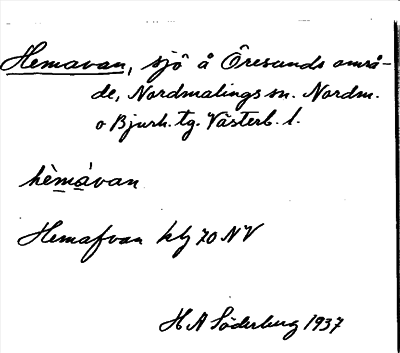 Hemavan, sjö å Öresunds områ-
de, Nordmalings sn. Nordm.
o Bjurh. tg. Västerb. l.
hèmàvan
Hemafvan kbl 70 NV
H A Söderberg 1937